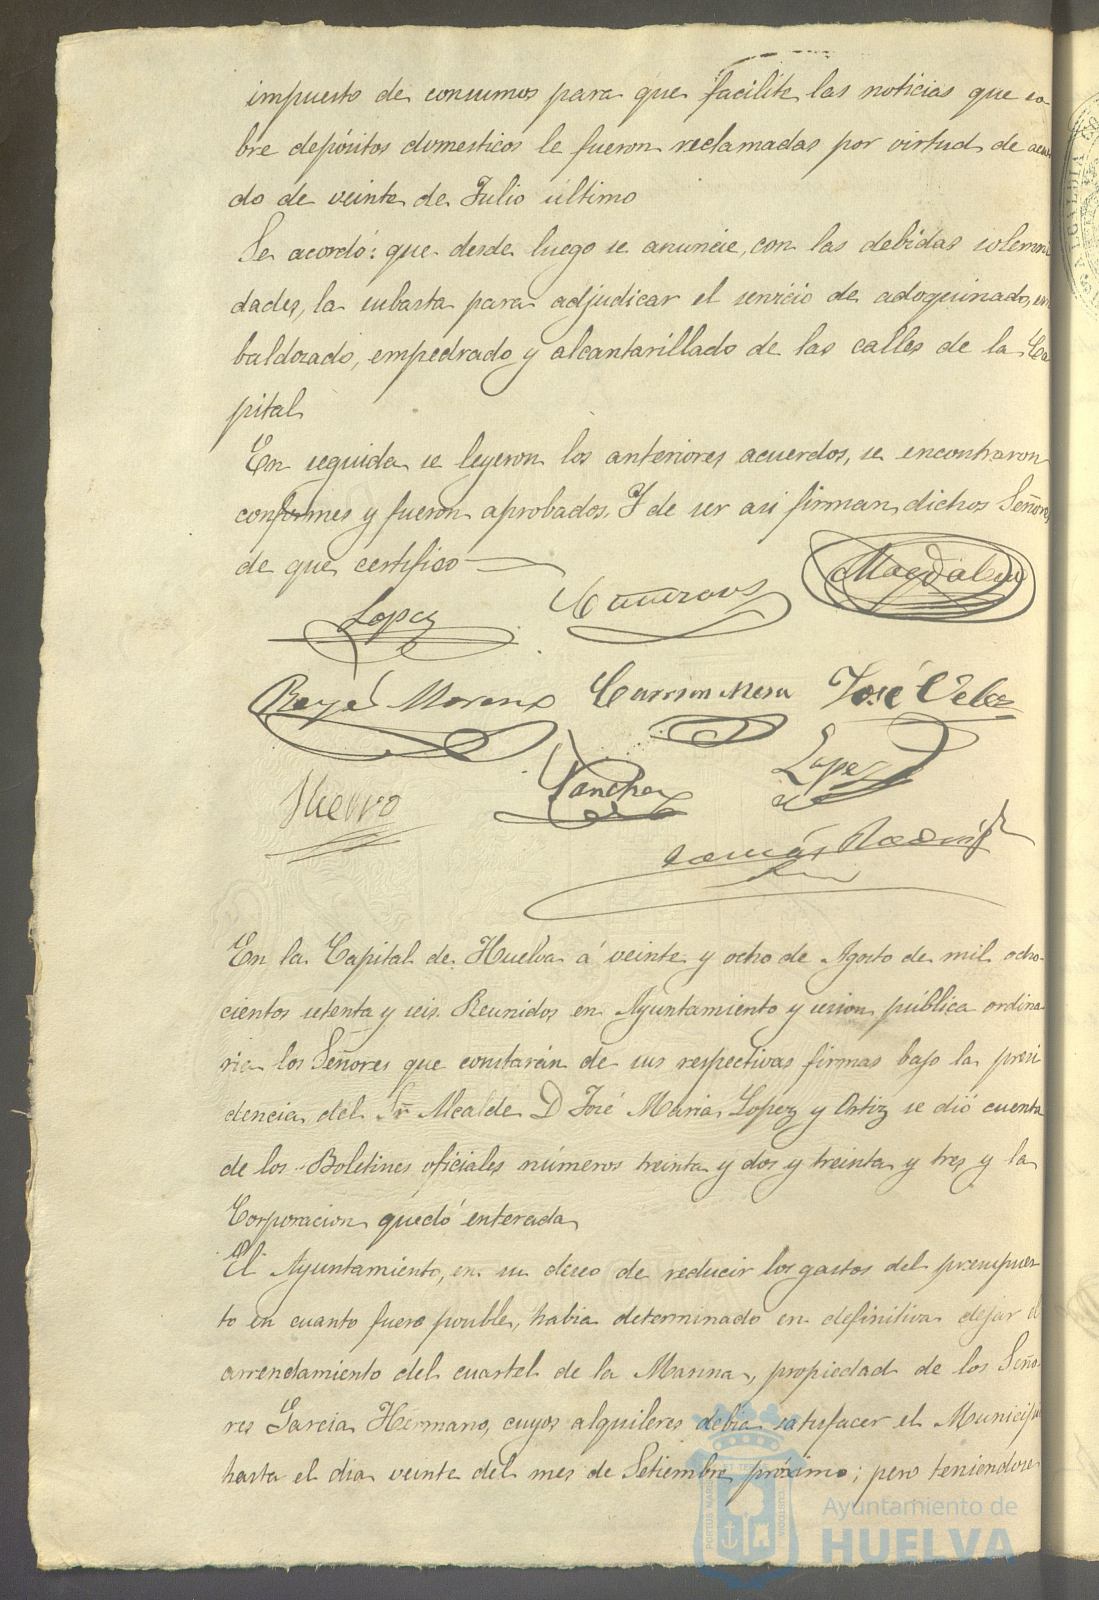 impuesto de consumos para que facilite las noticias que so-
bre depósitos domesticos le fueron reclamadas por virtud de acuer
do de veinte de Julio último
Se acordó: que desde luego se anuncie, con las debidas solemni
dades, la subasta para adjudicar el servicio de adoquinado, en
baldozado, empedrado y alcantarillado de las calles de la Ca
pital
En seguida se leyeron los anteriores acuerdos, se encontraron
conformes y fueron aprobados. Y de ser asi firman dichos Señores
de que certifico
Lopez
Magdalena
Reyes Moreno Carrion Mesa José Velez
Hierro Sanchez Lopez
Tomás
En la Capital de Huelva á veinte y ocho de Agosto de mil ocho-
cientos setenta y seis. Reunidos en Ayuntamiento y sesion pública ordina
ria los Señores que constarán de sus respectivas firmas bajo la presi
dencia del Sr Alcalde D José Maria Lopez y Ortiz se dió cuenta
de los Boletines oficiales números treinta y dos y treinta y tres y la
Corporacion quedó enterada
El Ayuntamiento, en su deseo de reducir los gastos del presupues
to en cuanto fuera posible, habia determinado en definitiva dejar el
arrendamiento del cuartel de la Marina, propiedad de los Seño
res Garcia Hermano, cuyos alquileres debia satisfacer el Municipio
hasta el dia veinte del mes de Setiembre próximo; pero teniendose
Ayuntamiento de
HUELVA